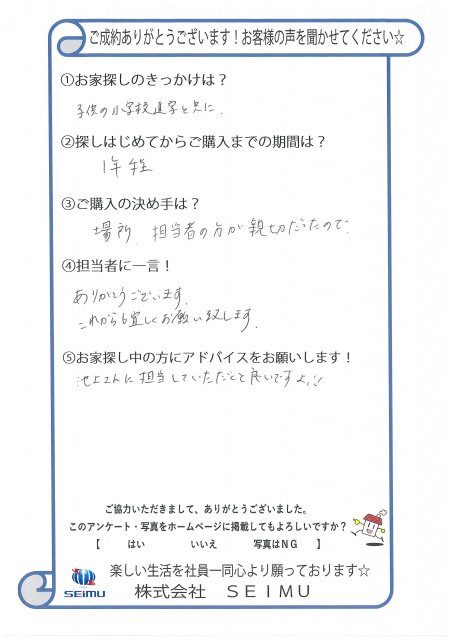 ご成約ありがとうございます!お客様の声を聞かせてください☆
①お家探しのきっかけは?
子供の小学校進学と共に.
②探しはじめてからご購入までの期間は?
1年程
③ご購入の決め手は?
場所、担当者の方が親切だったので.
④担当者に一言!
ありがとうございます.
これからも宜しくお願い致します.
⑤お家探し中の方にアドバイスをお願いします!
池上さんに担当していただくと良いですよ!!
ご協力いただきまして、ありがとうございました。
このアンケート・写真をホームページに掲載してもよろしいですか?
【 はい いいえ 写真はNG 】
楽しい生活を社員一同心より願っております☆
SEIMU 株式会社 SEIMU